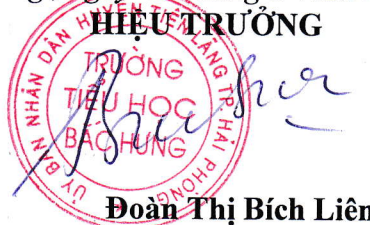 HIỆU TRƯỞNG
ỦY BAN NHÂN DÂN HUYỆN TIÊN LÃNG TP HẢI PHÒNG
TRƯỜNG
TIỂU HỌC
BẮC HƯNG
Đoàn Thị Bích Liên